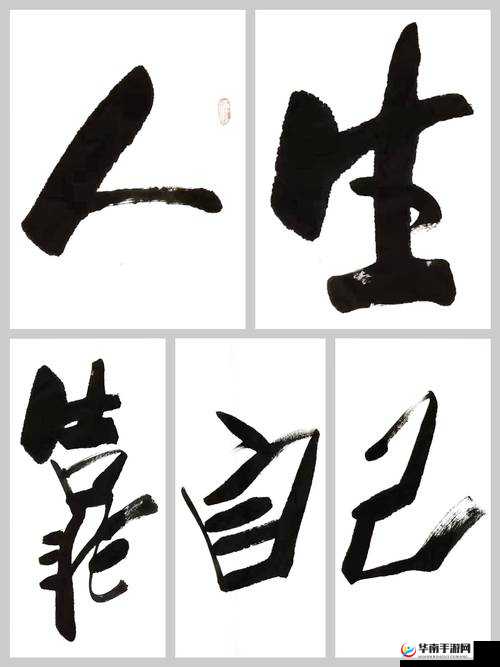 人生
靠自己
华南手游网